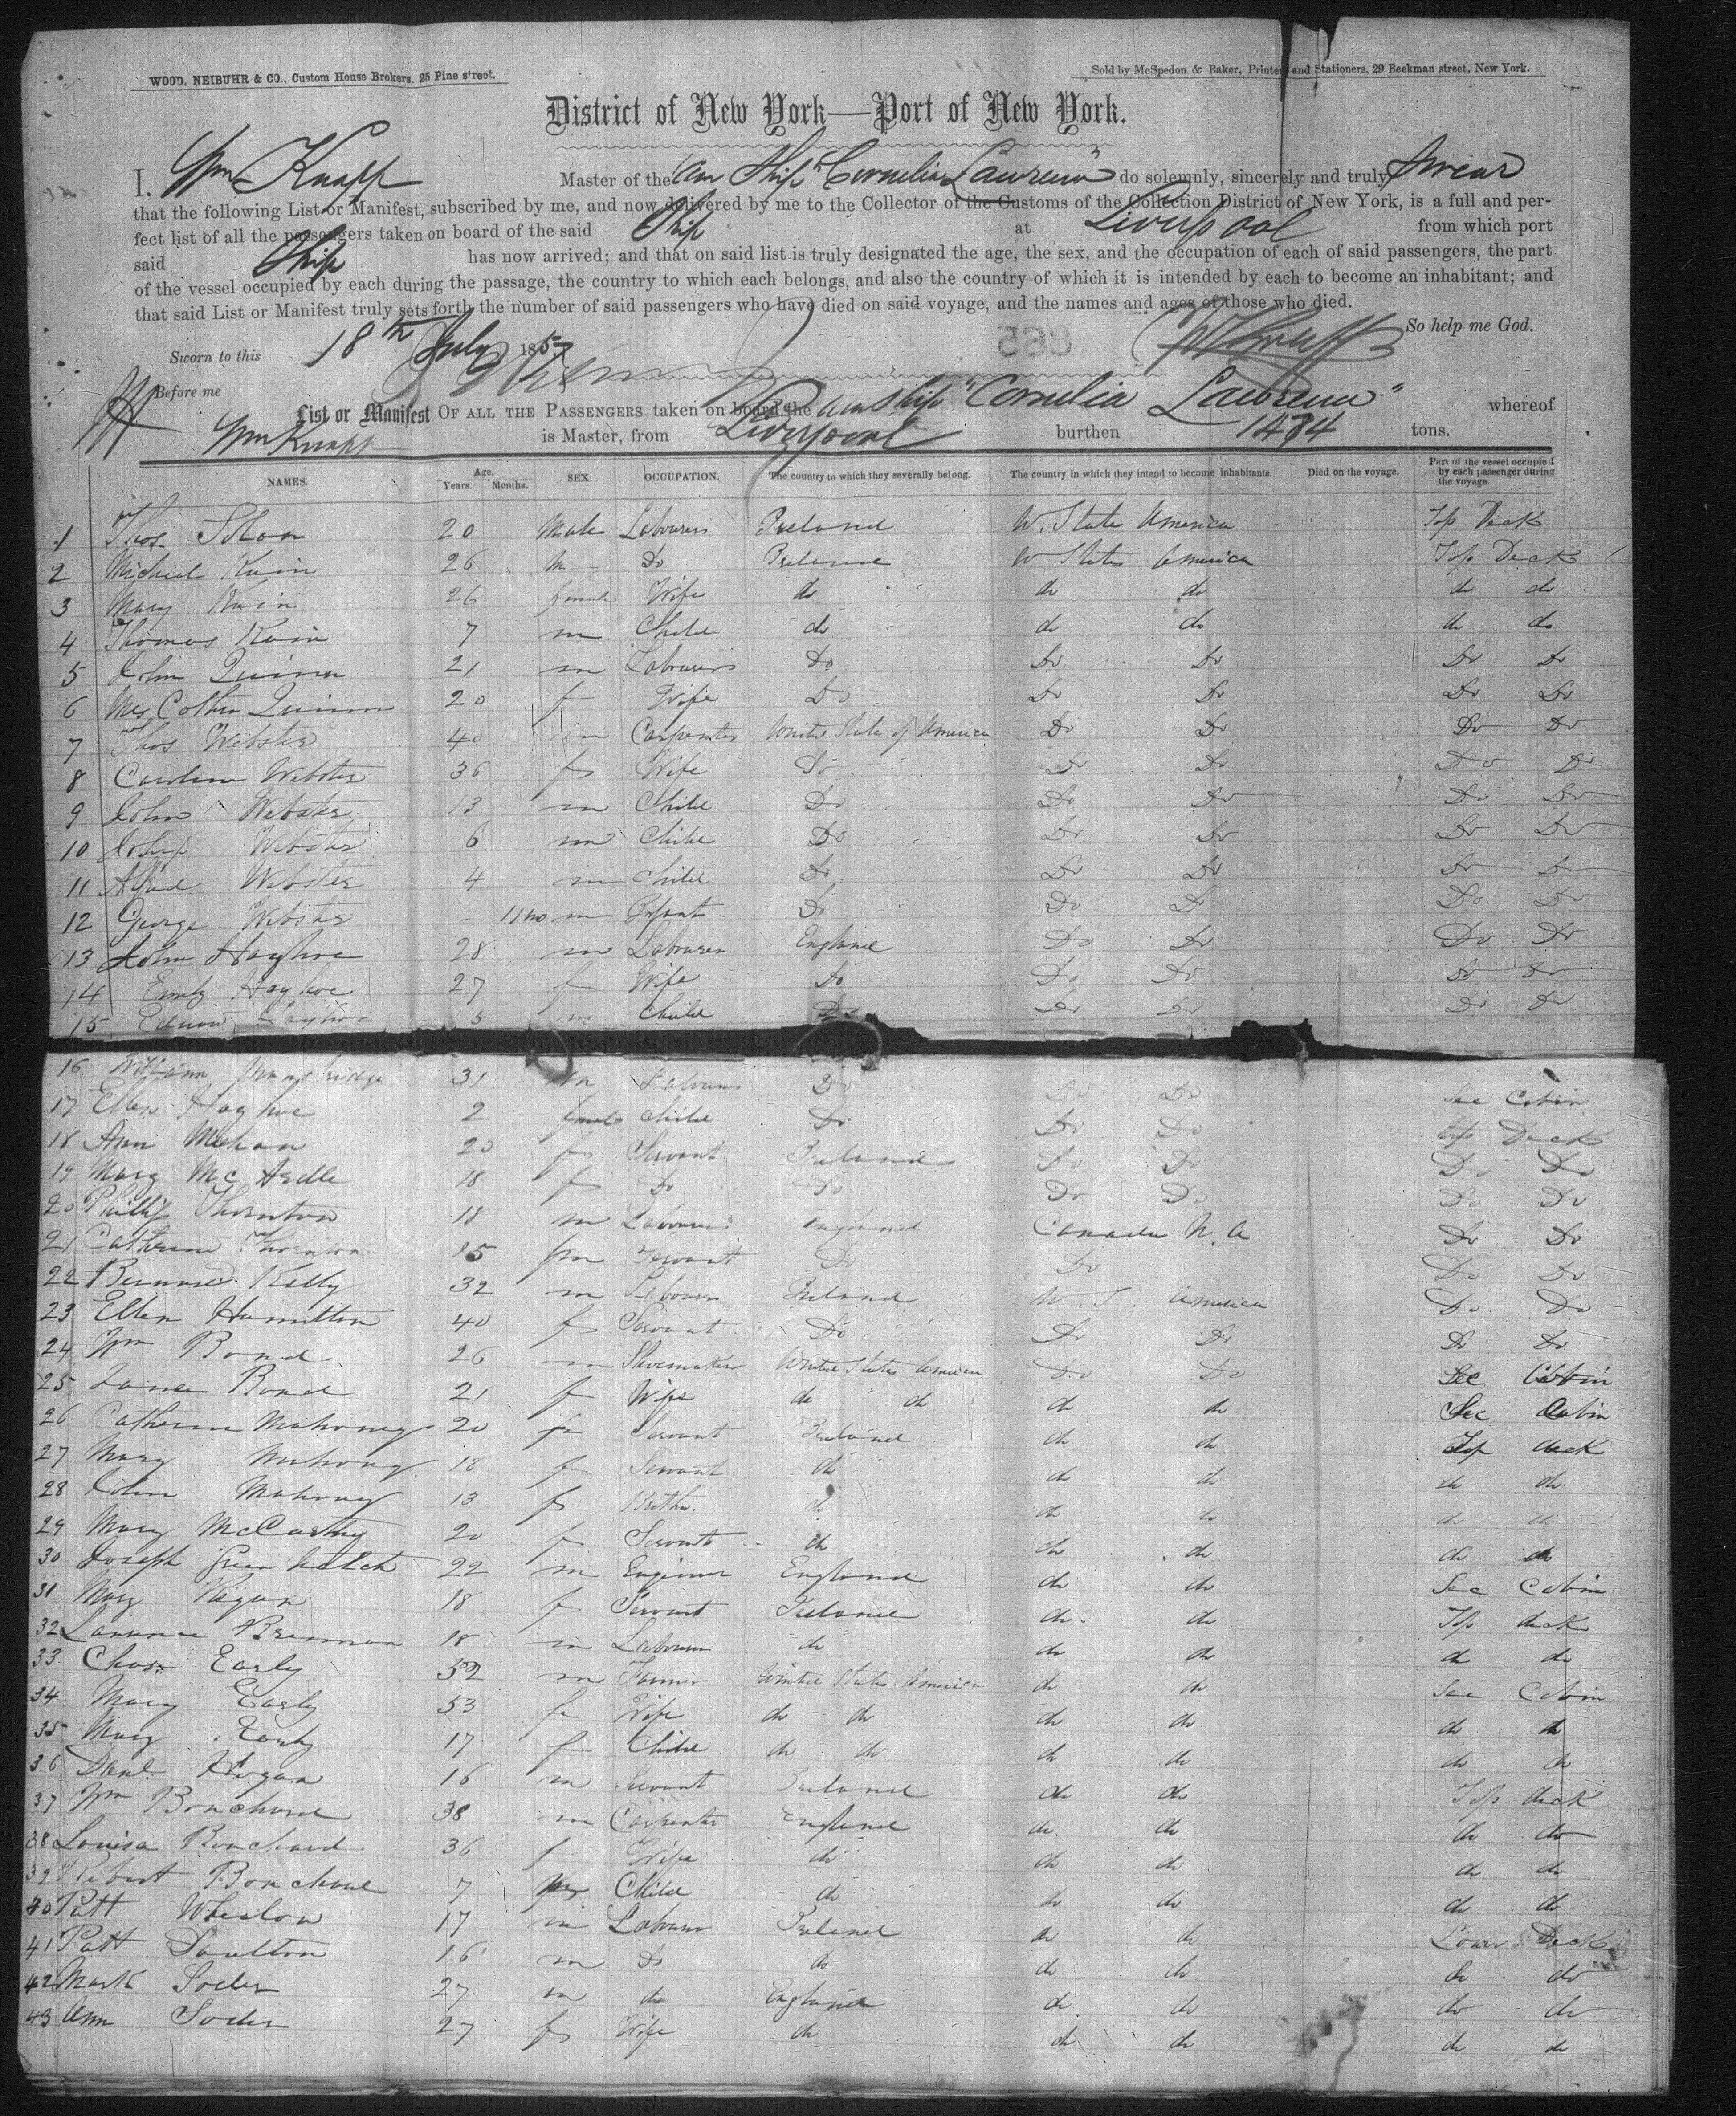 WOOD, NEIBUHR & CO., Custom House Brokers, 25 Pine street.
Sold by McSpedon & Baker, Printers and Stationers, 29 Beekman street, New York.
District of New York—Port of New York.
I, Wm Knapp Master of the Am Ship "Cornelia Lawrence" do solemnly, sincerely and truly swear
that the following List or Manifest, subscribed by me, and now delivered by me to the Collector of the Customs of the Collection District of New York, is a full and per-
fect list of all the passengers taken on board of the said Ship at Liverpool from which port
said Ship has now arrived; and that on said list is truly designated the age, the sex, and the occupation of each of said passengers, the part
of the vessel occupied by each during the passage, the country to which each belongs, and also the country of which it is intended by each to become an inhabitant; and
that said List or Manifest truly sets forth the number of said passengers who have died on said voyage, and the names and ages of those who died.
So help me God.
Sworn to this 18th July 1857
Before me
List or Manifest OF ALL THE PASSENGERS taken on board the Am Ship "Cornelia Lawrence" whereof
Wm Knapp is Master, from Liverpool burthen 1484 tons.
NAMES. Age. Years. Months. SEX OCCUPATION. The country to which they severally belong. The country in which they intend to become inhabitants. Died on the voyage. Part of the vessel occupied by each passenger during the voyage
1 Thos. 20 Male Labourer Ireland U. State America Top Deck
2 Michael Kain 26 m Do Ireland U States America Top Deck
3 Mary Kain 26 female Wife do do do do do
4 Thomas Kain 7 m Child do do do do do
5 John Quinn 21 m Labourer Do Do Do Do Do
6 Quinn 20 f Wife Do Do Do Do Do
7 Thos Webster 40 m Carpenter United State of America Do Do Do Do
8 Caroline Webster 36 f Wife Do Do Do Do Do
9 John Webster 13 m Child Do Do Do Do Do
10 Joseph Webster 6 m Child Do Do Do Do Do
11 Alfred Webster 4 m Child Do Do Do Do Do
12 George Webster - 11 mo m Infant Do Do Do Do Do
13 John Hayhoe 28 m Labourer England Do Do Do Do
14 Emily Hayhoe 27 f Wife Do Do Do Do Do
15 Hayhoe 3 m Child Do Do Do Do Do
16 William 31 m Labourer Do Do Do Sec Cabin
17 Ellen Hayhoe 2 female Child Do Do Do Top Deck
18 Ann Mehan 20 f Servant Ireland Do Do Do Do
19 Mary McArdle 18 f Do Do Do Do Do Do
20 Phillip Thornton 18 m Labourer England Canada N. A Do Do
21 Catherine Thornton 15 fm Servant Do Do Do Do
22 Bernard Kelly 32 m Labourer Ireland U. S. America Do Do
23 Ellen Hamilton 40 f Servant Do Do Do Do Do
24 Wm Bond 26 m Shoemaker United States America Do Do Sec Cabin
25 Bond 21 f Wife do do do do Sec Cabin
26 Catherine Mahoney 20 f Servant Ireland do do Top deck
27 Mary Mahoney 18 f Servant do do do do do
28 John Mahoney 13 f Broth. do do do do do
29 Mary McCarthy 20 f Servant do do do do do
30 Joseph 22 m Engineer England do do Sec Cabin
31 Mary 18 f Servant Ireland do do Top deck
32 Brennan 18 m Labourer do do do do do
33 Chas. Early 52 m Farmer United States America do do Sec Cabin
34 Mary Early 53 f Wife do do do do do do
35 Mary Early 17 f Child do do do do do do
36 Danl. Hogan 16 m Servant Ireland do do Top deck
37 Wm Bonchard 38 m Carpenter England do do do do
38 Louisa Bonchard 36 f Wife do do do do do
39 Robert Bonchard 7 Child do do do do do
40 Patt Whealon 17 m Labourer Ireland do do Lower Deck
41 Patt Doulton 16 m Do do do do do do
42 Mark 27 m do England do do do do
43 Ann 27 f Wife do do do do do